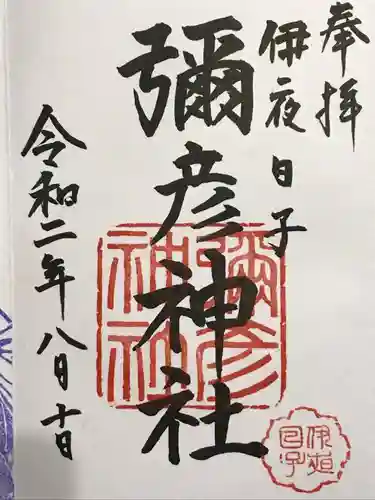 奉拝
伊夜日子
彌彦神社
令和二年八月十日
彌彦神社